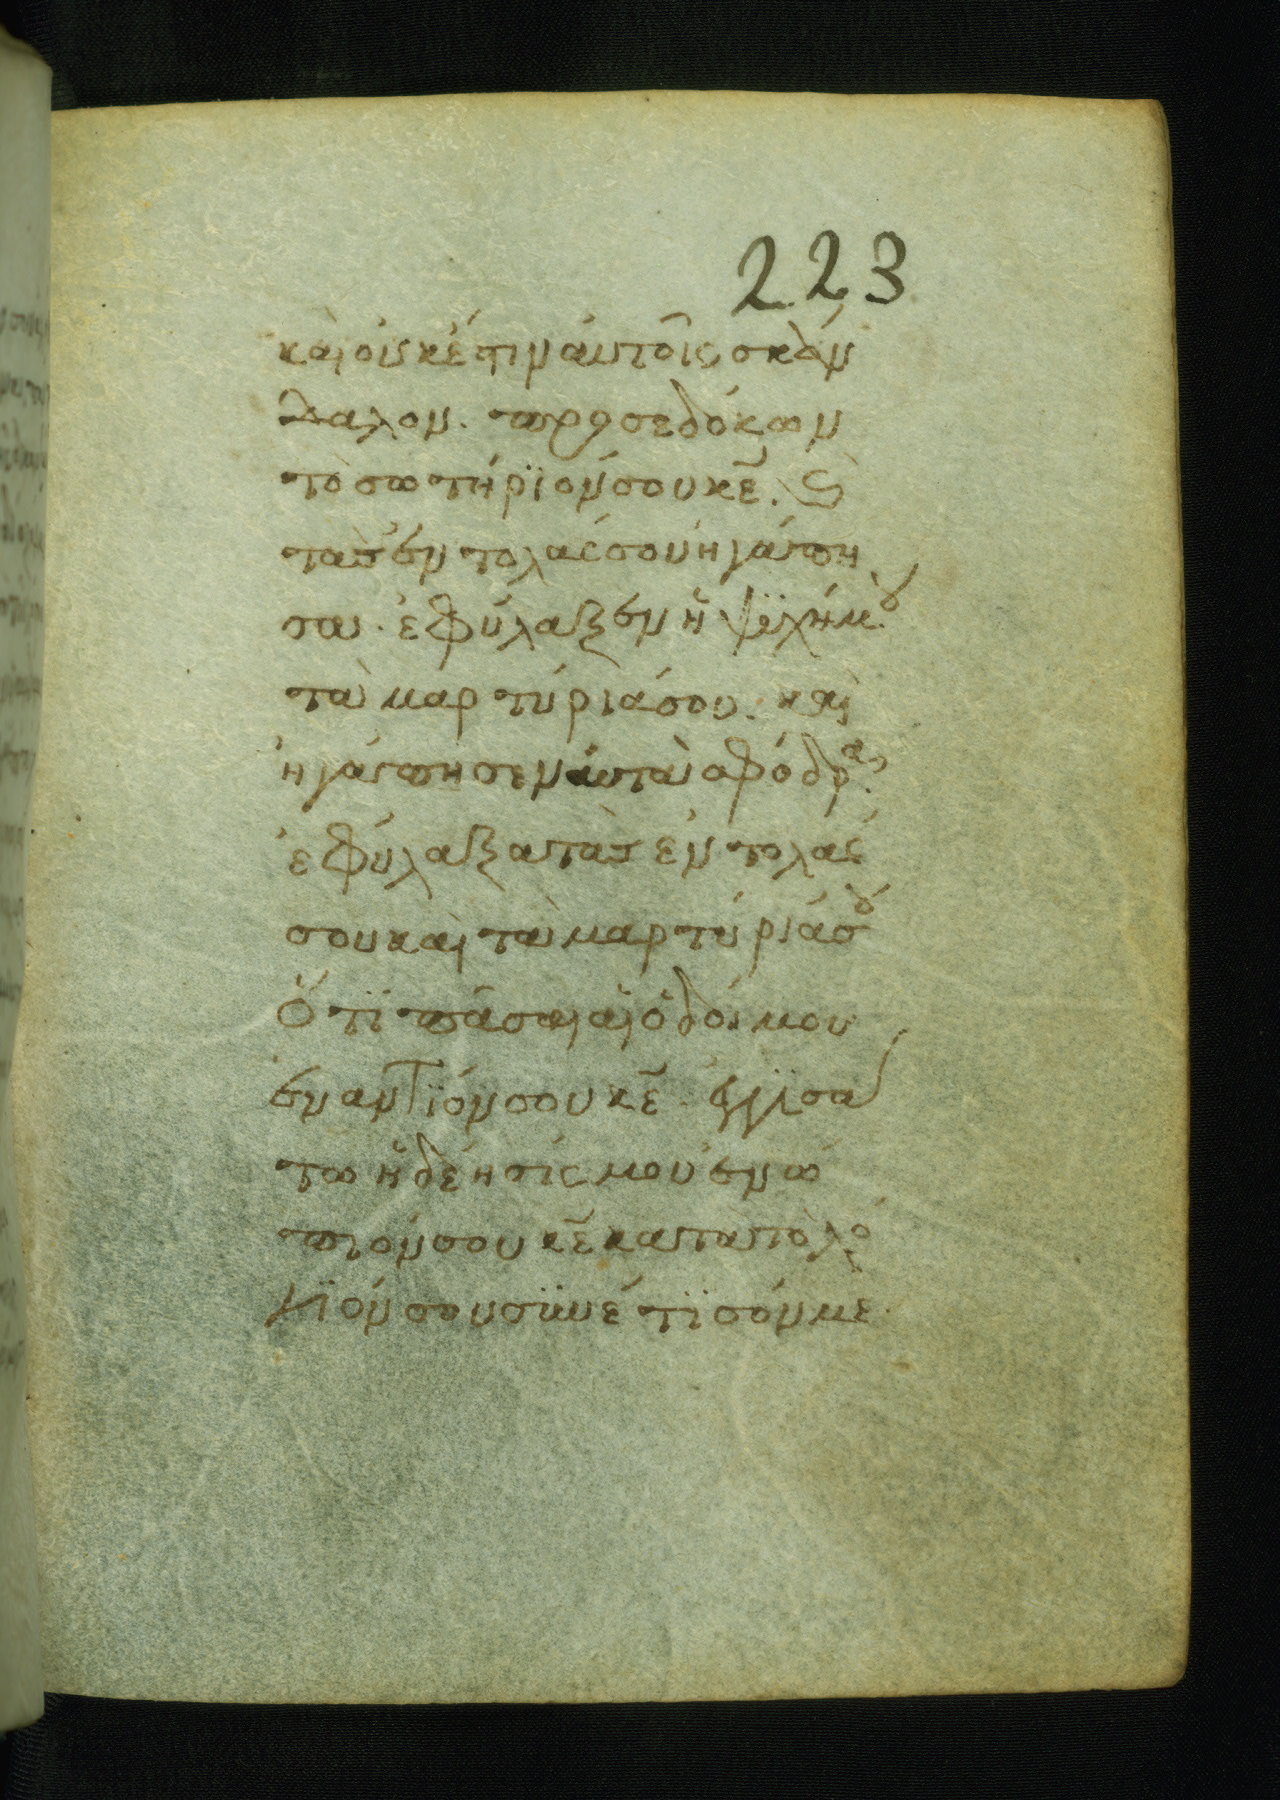 223
καὶ οὐκ έστιν ἀυτοῖς σκάν
δαλον. προσεδόκων
τὸ σωτήρϊόν σου κε̄. ϗ
τασ ἐντολάς σου ἠγάπη
σα. ἐφύλαξεν ἡ ψϋχήμου
τὰ μαρτύριά σου. καὶ
ἠγάπησεν ἀυτὰ σφόδρα.
ἐφύλαξα τασ ἐντολάς
σου καὶ τὰ μαρτύριά σου
Ὅτϊ πᾶσαι αἱ ὁδοί μου
ἐναντϊόν σου κε̄. ἐγγϊσά
τω ἡ δέησίς μου ἐνώ
πιόν σου κε̄ κατα τὸ λό
γϊόν σου συνέτϊσόν με.